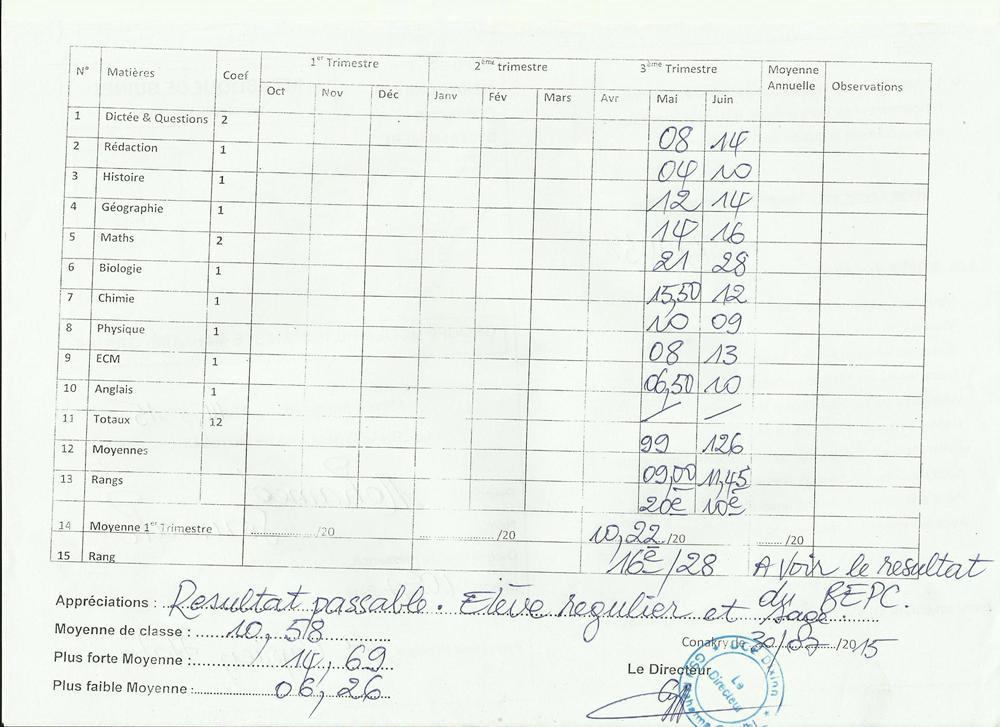 N° Matières Coef 1er Trimestre 2ème trimestre 3ème Trimestre Moyenne Annuelle Observations
Oct Nov Déc Janv Fév Mars Avr Mai Juin
1 Dictée & Questions 2 08 14
2 Rédaction 1 04 10
3 Histoire 1 12 14
4 Géographie 1 14 16
5 Maths 2 21 28
6 Biologie 1 15,50 12
7 Chimie 1 10 09
8 Physique 1 08 13
9 ECM 1 06,50 10
10 Anglais 1 / /
11 Totaux 12 99 126
12 Moyennes 09,00 11,45
13 Rangs 20e 10e
14 Moyenne 1er Trimestre ............/20 ............/20 10,22/20 ......../20
15 Rang 16e/28 A voir le resultat
du BEPC.
Appréciations : Resultat passable. Elève regulier et sage.
Moyenne de classe : 10,58
Conakry le 30/07/2015
Plus forte Moyenne : 14,69
Le Directeur
Plus faible Moyenne : 06,26
Dixinn
Le Directeur